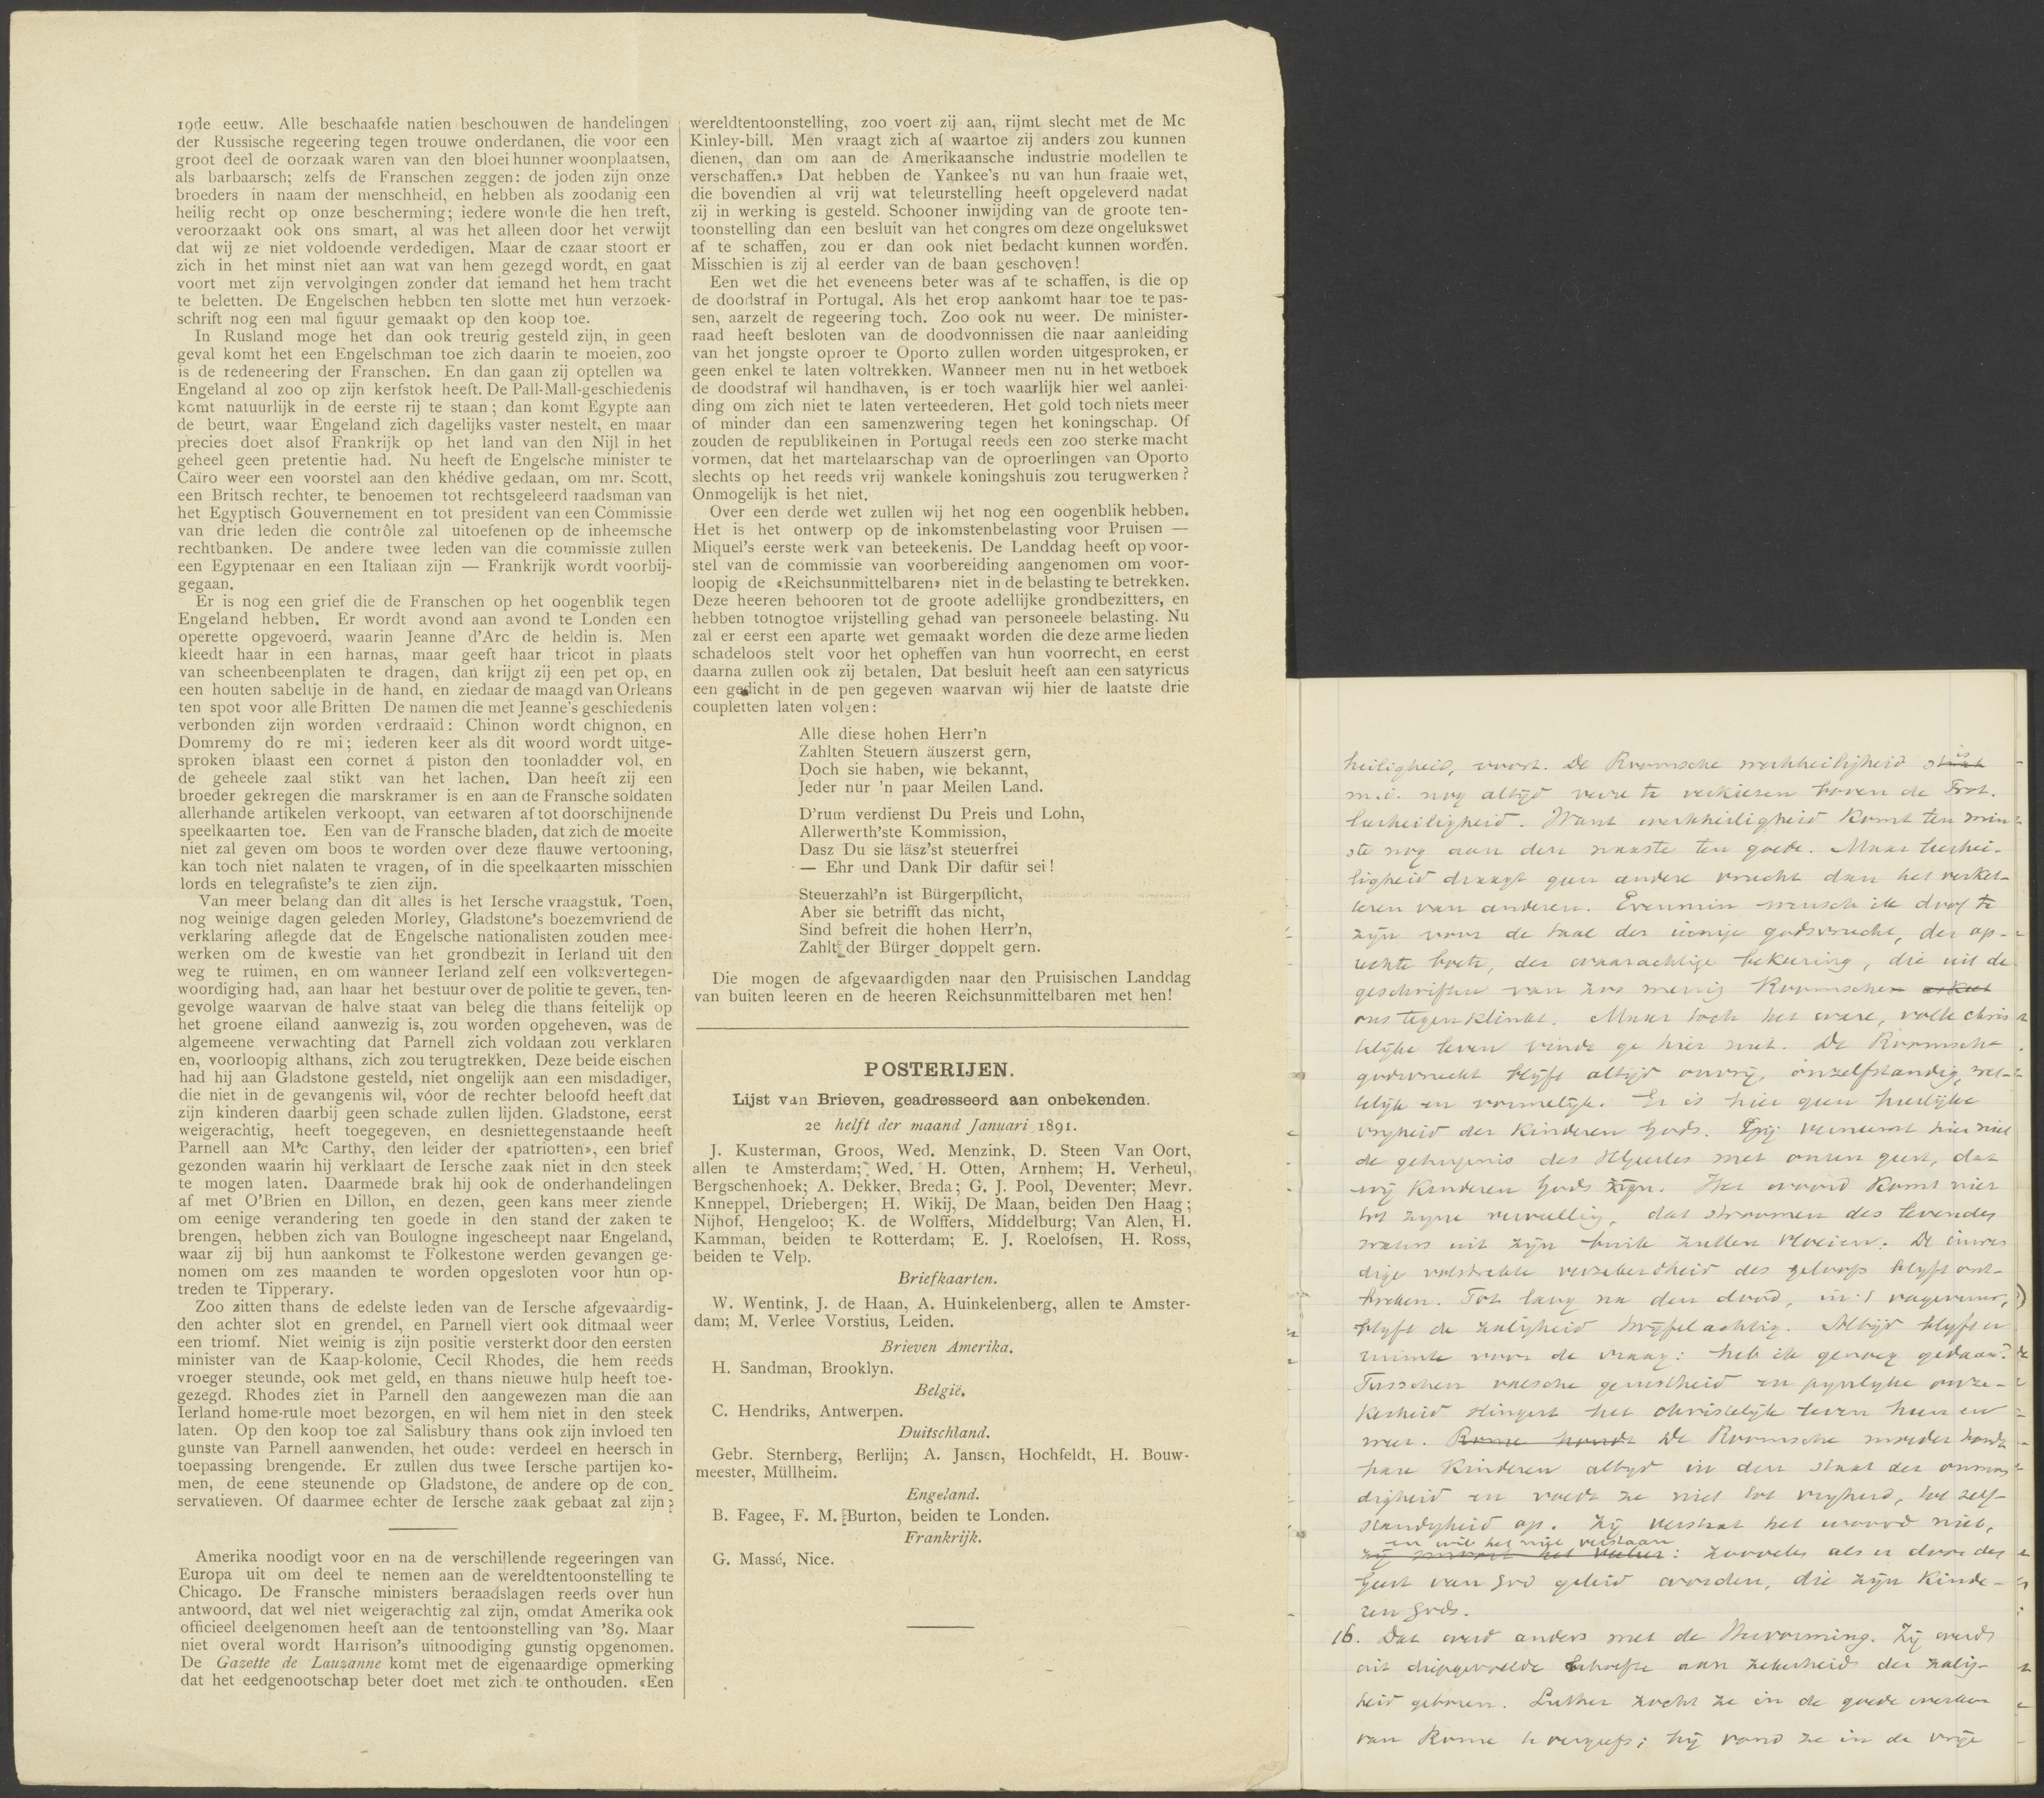 19de eeuw. Alle beschaafde natien beschouwen de handelingen
der Russische regeering tegen trouwe onderdanen, die voor een
groot deel de oorzaak waren van den bloei hunner woonplaatsen,
als barbaarsch; zelfs de Franschen zeggen: de joden zijn onze
broeders in naam der menschheid, en hebben als zoodanig een
heilig recht op onze bescherming; iedere wonde die hen treft,
veroorzaakt ook ons smart, al was het alleen door het verwijt
dat wij ze niet voldoende verdedigen. Maar de czaar stoort er
zich in het minst niet aan wat van hem gezegd wordt, en gaat
voort met zijn vervolgingen zonder dat iemand het hem tracht
te beletten. De Engelschen hebben ten slotte met hun verzoek-
schrift nog een mal figuur gemaakt op den koop toe.
In Rusland moge het dan ook treurig gesteld zijn, in geen
geval komt het een Engelschman toe zich daarin te moeien, zoo
is de redeneering der Franschen. En dan gaan zij optellen wa
Engeland al zoo op zijn kerfstok heeft. De Pall-Mall-geschiedenis
komt natuurlijk in de eerste rij te staan; dan komt Egypte aan
de beurt, waar Engeland zich dagelijks vaster nestelt, en maar
precies doet alsof Frankrijk op het land van den Nijl in het
geheel geen pretentie had. Nu heeft de Engelsche minister te
Caïro weer een voorstel aan den khédive gedaan, om mr. Scott,
een Britsch rechter, te benoemen tot rechtsgeleerd raadsman van
het Egyptisch Gouvernement en tot president van een Commissie
van drie leden die contrôle zal uitoefenen op de inheemsche
rechtbanken. De andere twee leden van die commissie zullen
een Egyptenaar en een Italiaan zijn — Frankrijk wordt voorbij-
gegaan.
Er is nog een grief die de Franschen op het oogenblik tegen
Engeland hebben. Er wordt avond aan avond te Londen een
operette opgevoerd, waarin Jeanne d'Arc de heldin is. Men
kleedt haar in een harnas, maar geeft haar tricot in plaats
van scheenbeenplaten te dragen, dan krijgt zij een pet op, en
een houten sabeltje in de hand, en ziedaar de maagd van Orleans
ten spot voor alle Britten De namen die met Jeanne's geschiedenis
verbonden zijn worden verdraaid: Chinon wordt chignon, en
Domremy do re mi; iederen keer als dit woord wordt uitge-
sproken blaast een cornet á piston den toonladder vol, en
de geheele zaal stikt van het lachen. Dan heeft zij een
broeder gekregen die marskramer is en aan de Fransche soldaten
allerhande artikelen verkoopt, van eetwaren af tot doorschijnende
speelkaarten toe. Een van de Fransche bladen, dat zich de moeite
niet zal geven om boos te worden over deze flauwe vertooning,
kan toch niet nalaten te vragen, of in die speelkaarten misschien
lords en telegrafiste's te zien zijn.
Van meer belang dan dit alles is het Iersche vraagstuk. Toen,
nog weinige dagen geleden Morley, Gladstone's boezemvriend de
verklaring aflegde dat de Engelsche nationalisten zouden mee-
werken om de kwestie van het grondbezit in Ierland uit den
weg te ruimen, en om wanneer Ierland zelf een volksvertegen-
woordiging had, aan haar het bestuur over de politie te geven, ten-
gevolge waarvan de halve staat van beleg die thans feitelijk op
het groene eiland aanwezig is, zou worden opgeheven, was de
algemeene verwachting dat Parnell zich voldaan zou verklaren
en, voorloopig althans, zich zou terugtrekken. Deze beide eischen
had hij aan Gladstone gesteld, niet ongelijk aan een misdadiger,
die niet in de gevangenis wil, vóor de rechter beloofd heeft dat
zijn kinderen daarbij geen schade zullen lijden. Gladstone, eerst
weigerachtig, heeft toegegeven, en desniettegenstaande heeft
Parnell aan Mc Carthy, den leider der «patriotten», een brief
gezonden waarin hij verklaart de Iersche zaak niet in den steek
te mogen laten. Daarmede brak hij ook de onderhandelingen
af met O'Brien en Dillon, en dezen, geen kans meer ziende
om eenige verandering ten goede in den stand der zaken te
brengen, hebben zich van Boulogne ingescheept naar Engeland,
waar zij bij hun aankomst te Folkestone werden gevangen ge-
nomen om zes maanden te worden opgesloten voor hun op-
treden te Tipperary.
Zoo zitten thans de edelste leden van de Iersche afgevaardig-
den achter slot en grendel, en Parnell viert ook ditmaal weer
een triomf. Niet weinig is zijn positie versterkt door den eersten
minister van de Kaap-kolonie, Cecil Rhodes, die hem reeds
vroeger steunde, ook met geld, en thans nieuwe hulp heeft toe-
gezegd. Rhodes ziet in Parnell den aangewezen man die aan
Ierland home-rule moet bezorgen, en wil hem niet in den steek
laten. Op den koop toe zal Salisbury thans ook zijn invloed ten
gunste van Parnell aanwenden, het oude: verdeel en heersch in
toepassing brengende. Er zullen dus twee Iersche partijen ko-
men, de eene steunende op Gladstone, de andere op de con-
servatieven. Of daarmee echter de Iersche zaak gebaat zal zijn?
Amerika noodigt voor en na de verschillende regeeringen van
Europa uit om deel te nemen aan de wereldtentoonstelling te
Chicago. De Fransche ministers beraadslagen reeds over hun
antwoord, dat wel niet weigerachtig zal zijn, omdat Amerika ook
officieel deelgenomen heeft aan de tentoonstelling van '89. Maar
niet overal wordt Harrison's uitnoodiging gunstig opgenomen.
De Gazette de Lauzanne komt met de eigenaardige opmerking
dat het eedgenootschap beter doet met zich te onthouden. «Een
wereldtentoonstelling, zoo voert zij aan, rijmt slecht met de Mc
Kinley-bill. Men vraagt zich af waartoe zij anders zou kunnen
dienen, dan om aan de Amerikaansche industrie modellen te
verschaffen.» Dat hebben de Yankee's nu van hun fraaie wet,
die bovendien al vrij wat teleurstelling heeft opgeleverd nadat
zij in werking is gesteld. Schooner inwijding van de groote ten-
toonstelling dan een besluit van het congres om deze ongelukswet
af te schaffen, zou er dan ook niet bedacht kunnen worden.
Misschien is zij al eerder van de baan geschoven!
Een wet die het eveneens beter was af te schaffen, is die op
de doodstraf in Portugal. Als het erop aankomt haar toe te pas-
sen, aarzelt de regeering toch. Zoo ook nu weer. De minister-
raad heeft besloten van de doodvonnissen die naar aanleiding
van het jongste oproer te Oporto zullen worden uitgesproken, er
geen enkel te laten voltrekken. Wanneer men nu in het wetboek
de doodstraf wil handhaven, is er toch waarlijk hier wel aanlei-
ding om zich niet te laten verteederen. Het gold toch niets meer
of minder dan een samenzwering tegen het koningschap. Of
zouden de republikeinen in Portugal reeds een zoo sterke macht
vormen, dat het martelaarschap van de oproerlingen van Oporto
slechts op het reeds vrij wankele koningshuis zou terugwerken?
Onmogelijk is het niet.
Over een derde wet zullen wij het nog een oogenblik hebben.
Het is het ontwerp op de inkomstenbelasting voor Pruisen —
Miquel's eerste werk van beteekenis. De Landdag heeft op voor-
stel van de commissie van voorbereiding aangenomen om voor-
loopig de «Reichsunmittelbaren» niet in de belasting te betrekken.
Deze heeren behooren tot de groote adellijke grondbezitters, en
hebben totnogtoe vrijstelling gehad van personeele belasting. Nu
zal er eerst een aparte wet gemaakt worden die deze arme lieden
schadeloos stelt voor het opheffen van hun voorrecht, en eerst
daarna zullen ook zij betalen. Dat besluit heeft aan een satyricus
een gedicht in de pen gegeven waarvan wij hier de laatste drie
coupletten laten volgen:
Alle diese hohen Herr'n
Zahlten Steuern äuszerst gern,
Doch sie haben, wie bekannt,
Jeder nur 'n paar Meilen Land.
D'rum verdienst Du Preis und Lohn,
Allerwerth'ste Kommission,
Dasz Du sie läsz'st steuerfrei
— Ehr und Dank Dir dafür sei!
Steuerzahl'n ist Bürgerpflicht,
Aber sie betrifft das nicht,
Sind befreit die hohen Herr'n,
Zahlt der Bürger doppelt gern.
Die mogen de afgevaardigden naar den Pruisischen Landdag
van buiten leeren en de heeren Reichsunmittelbaren met hen!
POSTERIJEN.
Lijst van Brieven, geadresseerd aan onbekenden.
2e helft der maand Januari 1891.
J. Kusterman, Groos, Wed. Menzink, D. Steen Van Oort,
allen te Amsterdam; Wed. H. Otten, Arnhem; H. Verheul,
Bergschenhoek; A. Dekker, Breda; G. J. Pool, Deventer; Mevr.
Knneppel, Driebergen; H. Wikij, De Maan, beiden Den Haag;
Nijhof, Hengeloo; K. de Wolffers, Middelburg; Van Alen, H.
Kamman, beiden te Rotterdam; E. J. Roelofsen, H. Ross,
beiden te Velp.
Briefkaarten.
W. Wentink, J. de Haan, A. Huinkelenberg, allen te Amster-
dam; M. Verlee Vorstius, Leiden.
Brieven Amerika.
H. Sandman, Brooklyn.
België.
C. Hendriks, Antwerpen.
Duitschland.
Gebr. Sternberg, Berlijn; A. Jansen, Hochfeldt, H. Bouw-
meester, Müllheim.
Engeland.
B. Fagee, F. M. Burton, beiden te Londen.
Frankrijk.
G. Massé, Nice.
heiligheid, voort. De Roomsche werkheiligheid is
m.i. nog altijd verre te verkiezen boven de Prot.
leerheiligheid. Want werkheiligheid komt ten min-
ste nog aan den naaste ten goede. Maar leerhei-
ligheid draagt geen andere vrucht dan het verket-
teren van anderen. Evenmin wensch ik doof te
zijn voor de taal der innige godsvrucht, der op-
rechte boete, der waarachtige bekeering, die uit de
geschriften van zoo menig Roomschen
ons tegenklinkt. Maar toch het ware, volle chris
telijke leven vindt ge hier niet. De Roomsche
godsvrucht blijft altijd onvrij, onzelfstandig, wet-
telijk en vormelijk. Er is hier geen heerlijke
vrijheid der kinderen Gods. Gij verneemt hier niet
de getuigenis des H Geestes met onzen geest, dat
wij kinderen Gods zijn. Het woord komt hier
tot zijne vervulling, dat stroomen des levenden
waters uit zijn buik zullen vloeien. De inwen
dige volstrekte verzekerdheid des geloofs blijft ont-
breken. Tot lang na den dood, in 't vagevuur,
blijft de zaligheid twijfelachtig. Altijd blijft er
ruimte voor de vraag: heb ik genoeg gedaan?
Tusschen valsche gerustheid en pijnlijke onze-
kerheid slingert het christelijk leven heen en
weer. Rome houdt De Roomsche moeder houdt
hare kinderen altijd in den staat der onmon
digheid en voedt ze niet tot vrijheid, tot zelf-
standigheid op. Zij verstaat het woord niet,
en wil het niet verstaan
: zoovelen als er door den
Geest van God geleid worden, die zijn kinde-
ren Gods.
16. Dat werd anders met de Hervorming. Zij werd
uit diepgevoelde behoefte aan zekerheid der zalig-
heid geboren. Luther zocht ze in de goede werken
van Rome te vergeefs; hij vond ze in de vrije